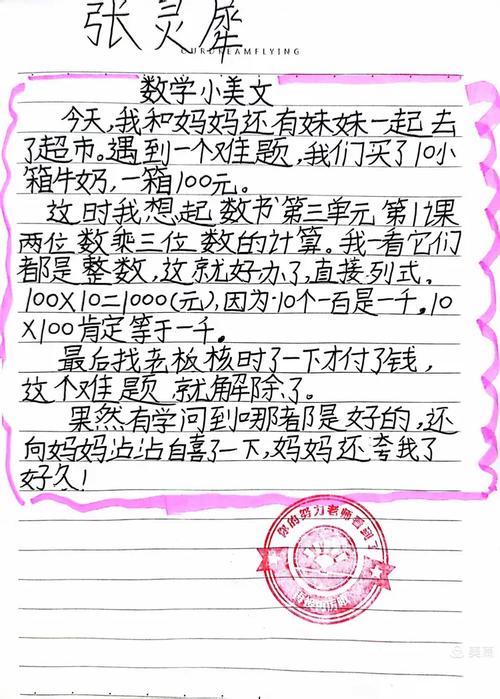 张灵犀
OURDREAMFLYING
数学小美文
今天,我和妈妈还有妹妹一起去
了超市。遇到一个难题,我们买了10小
箱牛奶,一箱100元。
这时我想起数书第三单元第1课
两位数乘三位数的计算。我一看它们
都是整数,这就好办了,直接列式。
100X10=1000(元),因为10个一百是一千。10
X100肯定等于一千。
最后找老板核时了一下才付了钱,
这个难题就解除了。
果然有学问到哪都是好的,还
向妈妈沾沾自喜了一下,妈妈还夸我了
好久!
你的努力老师看到了
美篇